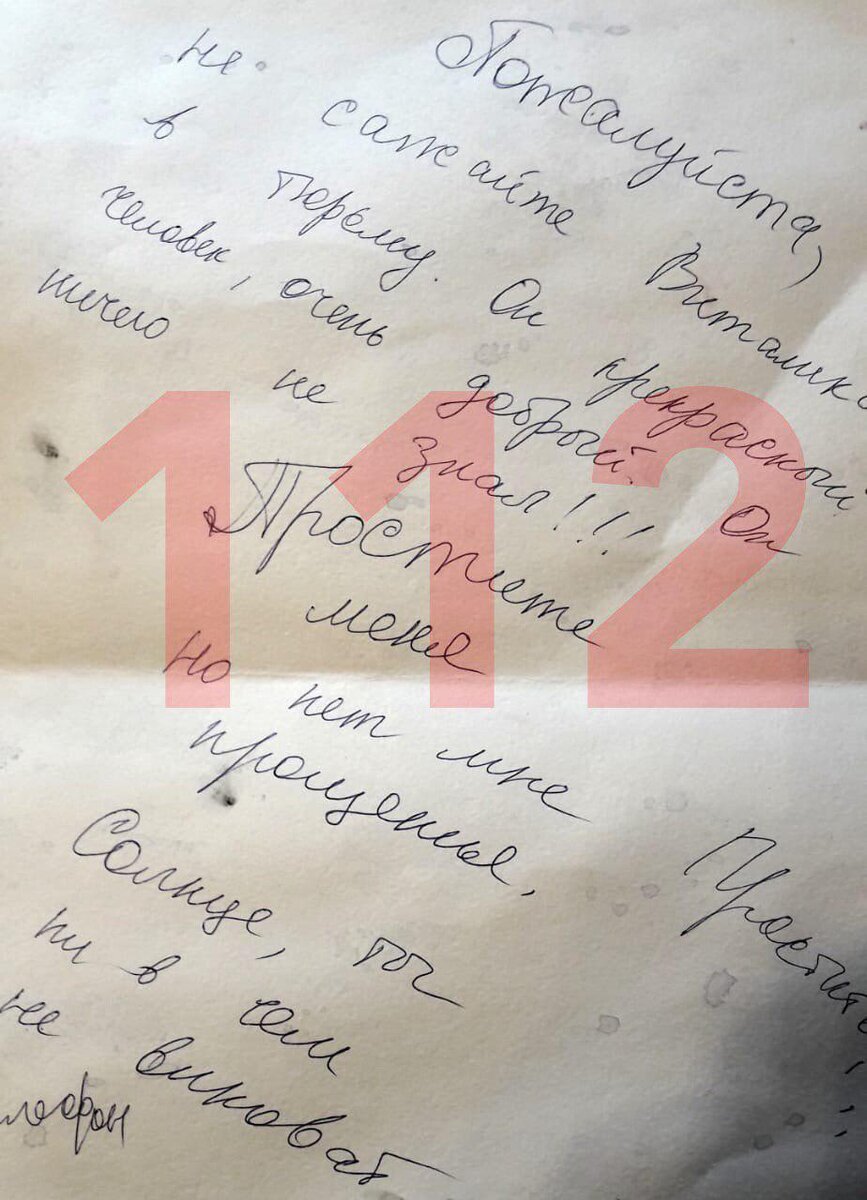 Пожалуйста,
не сажайте Виталика
в тюрьму. Он прекрасный
человек, очень добрый. Он
ничего не знал!!!
Простите
меня
Но нет мне
прощенья,
Простите
Солнце, ты
ни в чем
не виноват
112